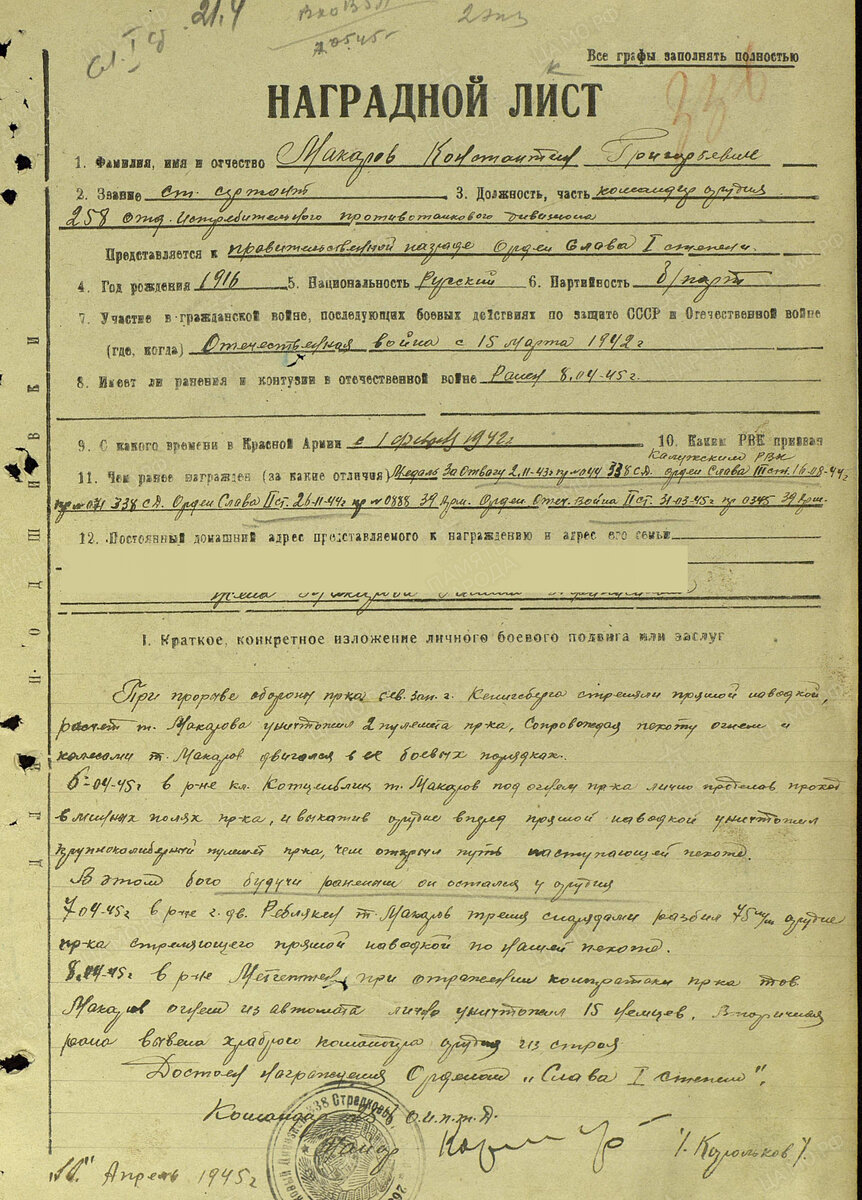 21.4
2 экз
Все графы заполнять полностью
НАГРАДНОЙ ЛИСТ
1. Фамилия, имя и отчество Макаров Константин Григорьевич
2. Звание ст. сержант 3. Должность, часть командир орудия
258 отд. истребительного противотанкового дивизиона
Представляется к правительственной награде Орден Слава I степени.
4. Год рождения 1916 5. Национальность Русский 6. Партийность б/парт
7. Участие в гражданской войне, последующих боевых действиях по защите СССР и Отечественной войне
(где, когда) Отечественная война с 15 марта 1942 г
8. Имеет ли ранения и контузии в отечественной войне Ранен 8.04-45г.
9. С какого времени в Красной Армии с 1 февр 1942г 10. Каким РВК призван
Калужским РВК
11. Чем ранее награжден (за какие отличия) Медаль За Отвагу 2.11-43г пр №044 338 с.д. орден Слава III ст. 16-08-44г
пр №071 338 с.д. Орден Слава II ст. 26-11-44г пр №0888 39 Арм. Орден Отеч. Война II ст. 31-03-45г пр 0345 39 Арм.
12. Постоянный домашний адрес представляемого к награждению и адрес его семьи
I. Краткое, конкретное изложение личного боевого подвига или заслуг
При прорыве обороны пр-ка сев. зап. г. Кенигсберга стреляли прямой наводкой,
расчет т. Макарова уничтожил 2 пулемета пр-ка, Сопровождая пехоту огнем и
колесами т. Макаров двигался в ее боевых порядках.
6-04-45г в р-не кл. т. Макаров под огнем пр-ка лично проделав проход
в минных полях пр-ка, и выкатив орудие вперед прямой наводкой уничтожил
крупнокалиберный пулемет пр-ка, чем открыл путь наступающей пехоте.
В этом бою будучи раненым он остался у орудия
7.04-45г в р-не г. дв. т. Макаров тремя снарядами разбил 75 м/м орудие
пр-ка стреляющего прямой наводкой по нашей пехоте.
8.04-45г в р-не при отражении контратаки пр-ка тов
Макаров огнем из автомата лично уничтожил 15 немцев. Вторичная
рана вывела храброго командира орудия из строя
Достоин награждения Орденом „Слава I степени".
Командир 258 о.и.п.т.д.
Майор /Корольков/.
Апрель 1945г
ДЛЯ ПОДШИВКИ